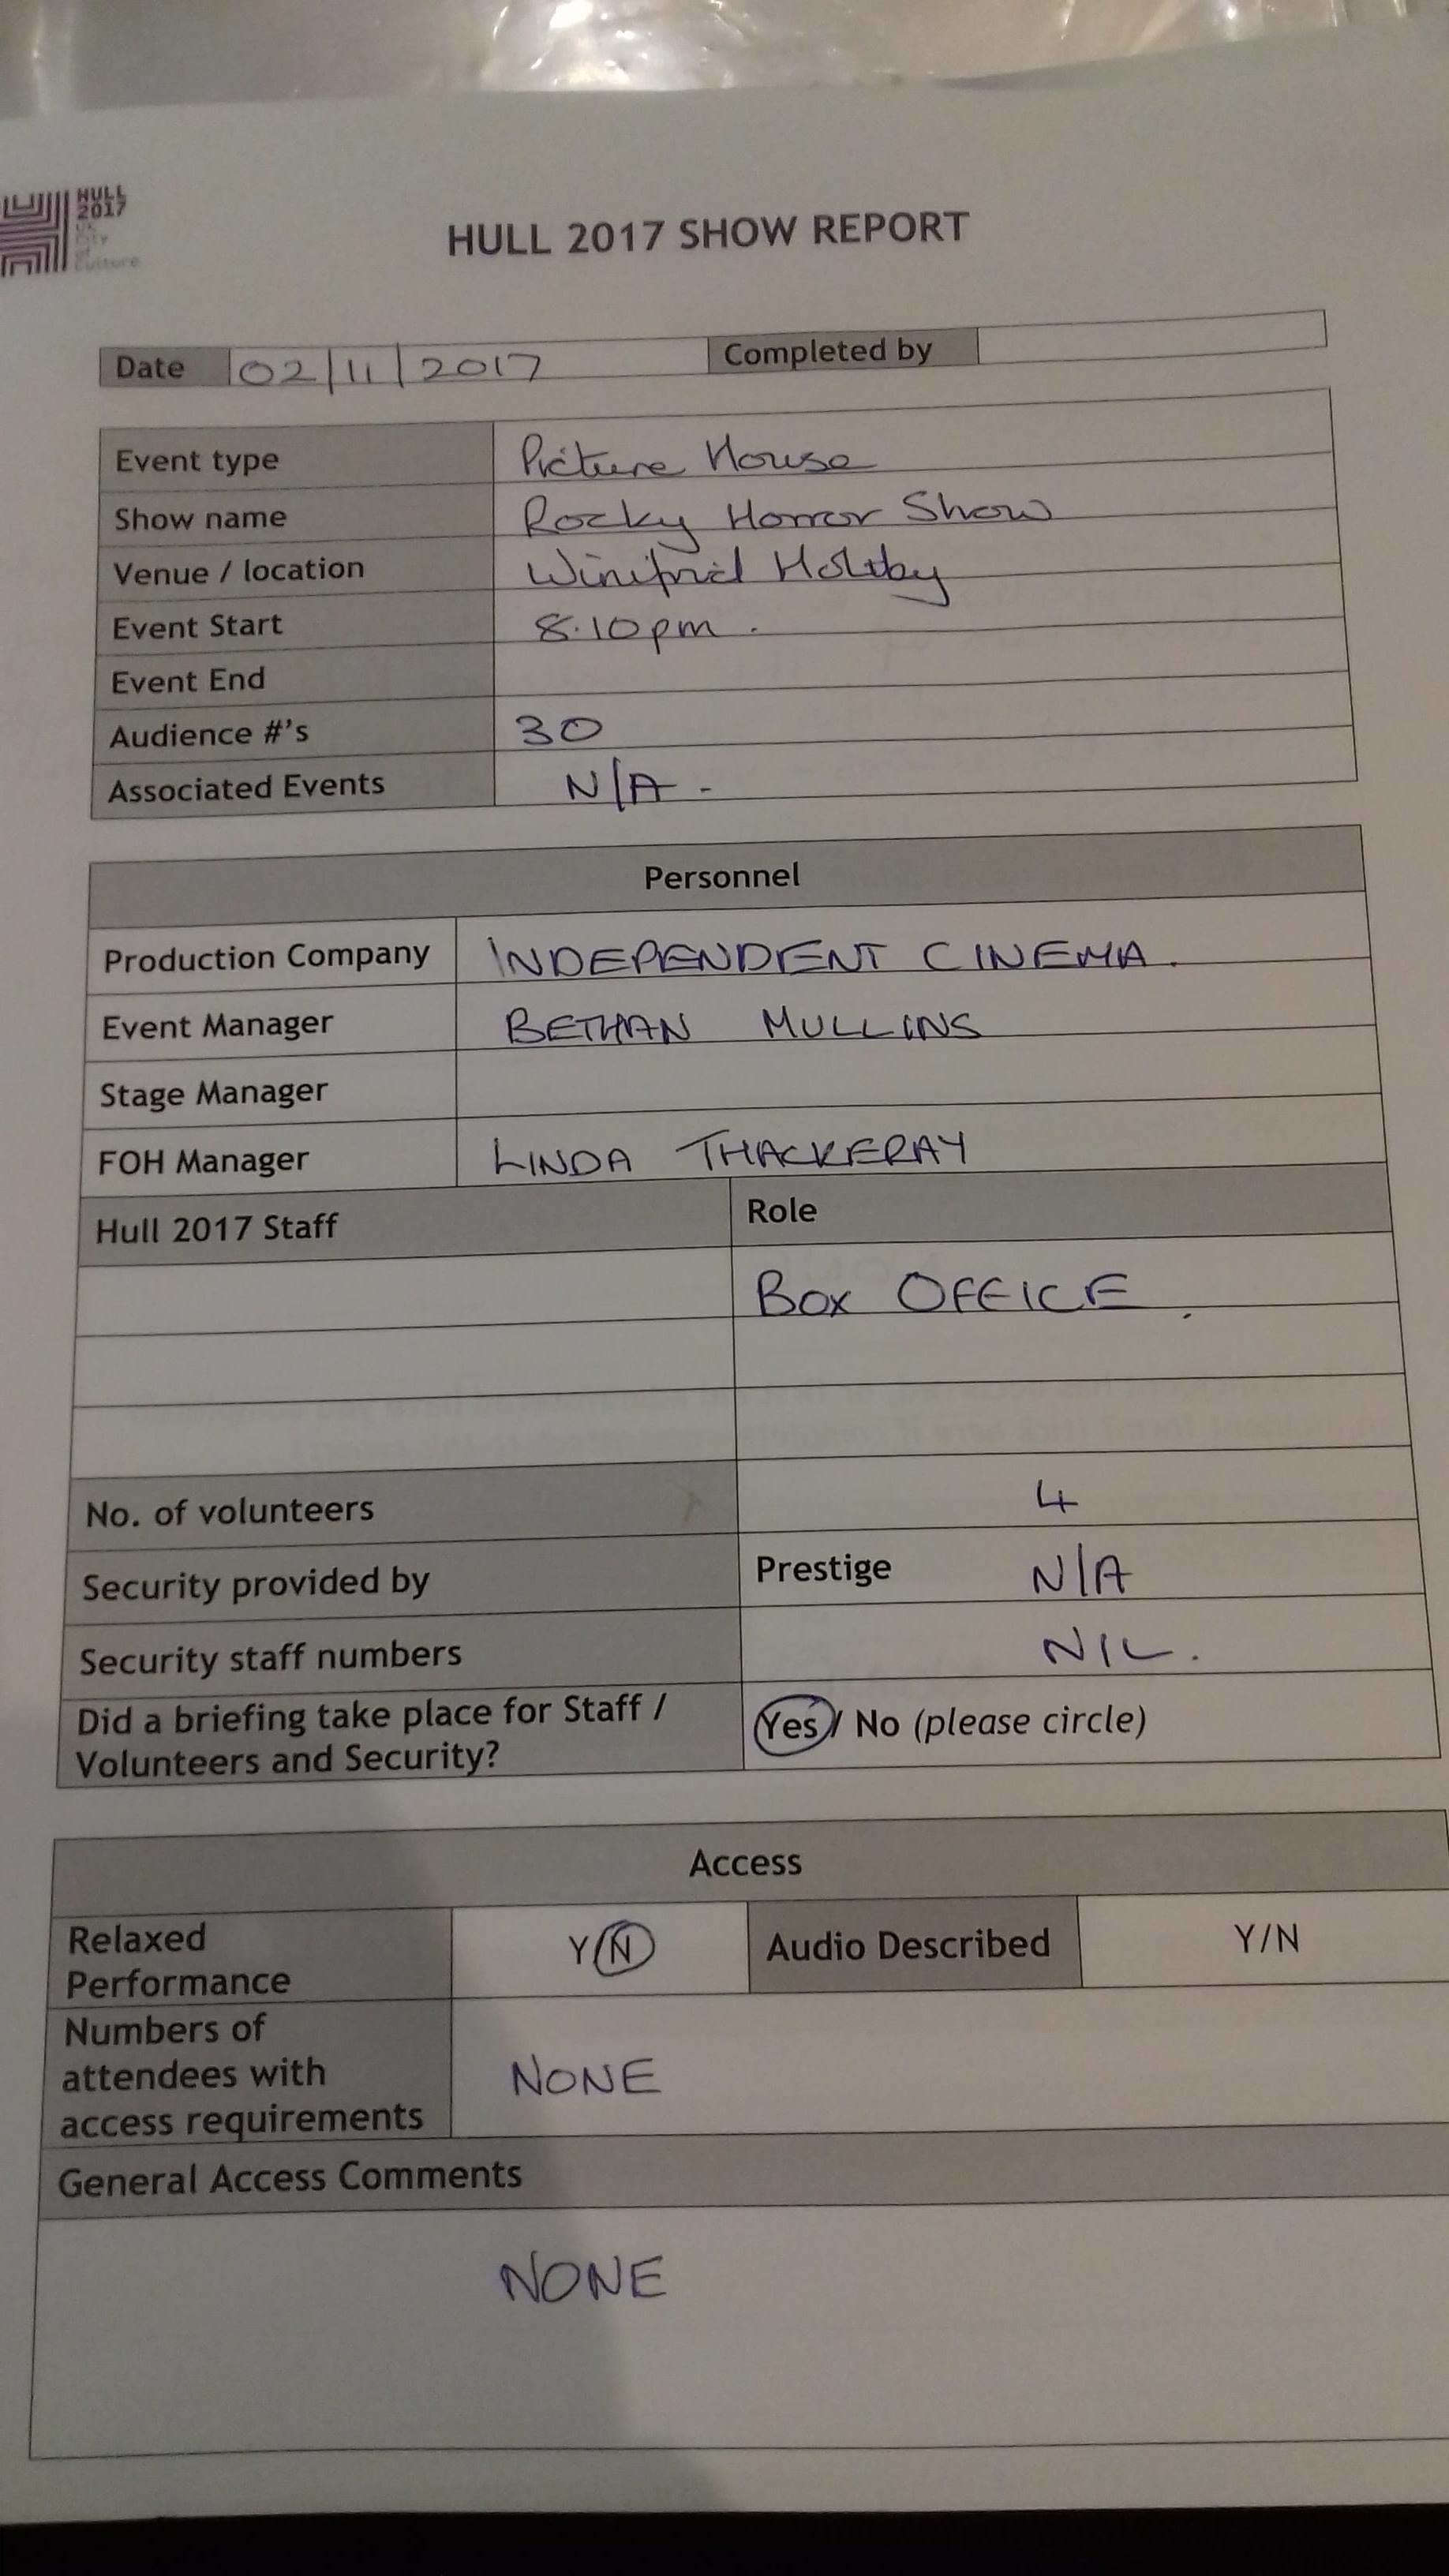 HULL
2017
UK
City
of
Culture
HULL 2017 SHOW REPORT
Date 02/11/2017 Completed by
Event type Picture House
Show name Rocky Horror Show
Venue / location Winifrid Holtby
Event Start 8.10pm.
Event End
Audience #'s 30
Associated Events N/A -
Personnel
Production Company INDEPENDENT CINEMA.
Event Manager BETHAN MULLINS
Stage Manager
FOH Manager LINDA THACKERAY
Hull 2017 Staff Role
BOX OFFICE.
No. of volunteers 4
Security provided by Prestige N/A
Security staff numbers NIL.
Did a briefing take place for Staff / Yes / No (please circle)
Volunteers and Security?
Access
Relaxed Y/N Audio Described Y/N
Performance
Numbers of
attendees with NONE
access requirements
General Access Comments
NONE